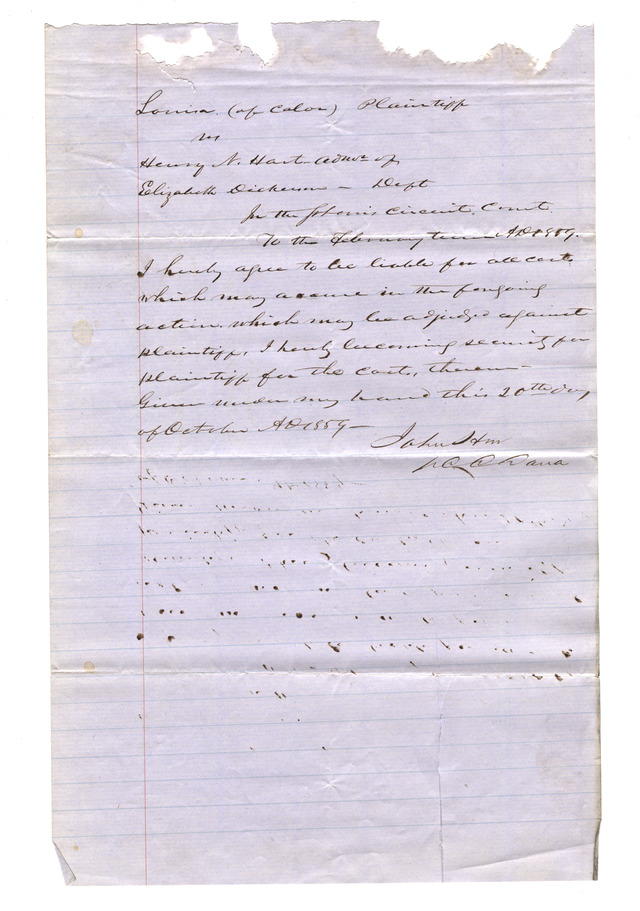 Louisa (of Color) Plaintiff
vs
Henry N. Hart admr of
Elizabeth Dickerson — Deft
In the St Louis Circuit Court
To the February term AD 1859.
I hereby agree to be liable for all costs
which may accrue in the forgoing
action, which may be adjudged against
plaintiff, I hereby becoming security for
plaintiff for the costs, therein —
Given under my hand this 20th day
of October AD 1859 —
John
C Dana